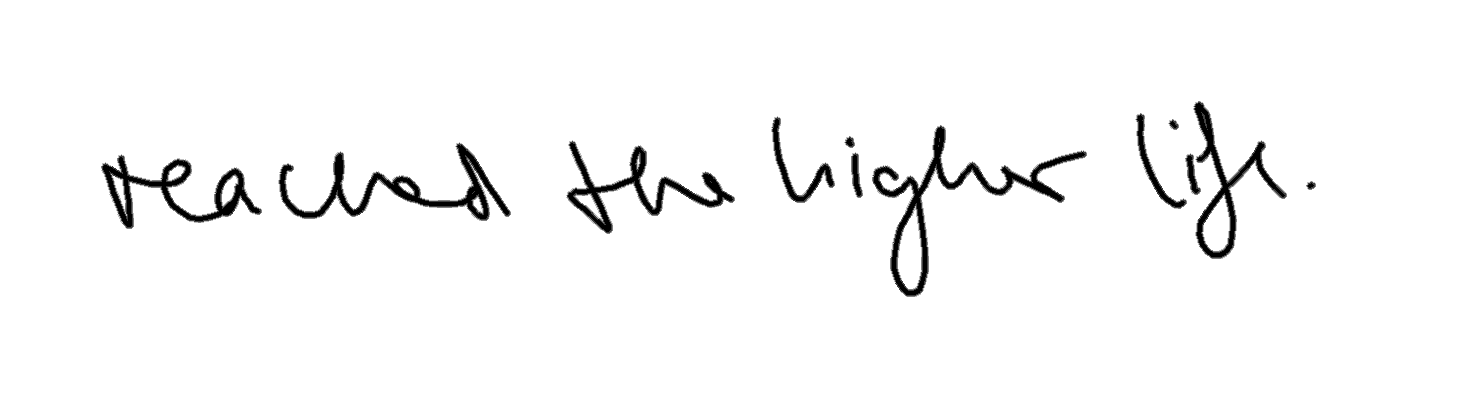 reached the higher life.